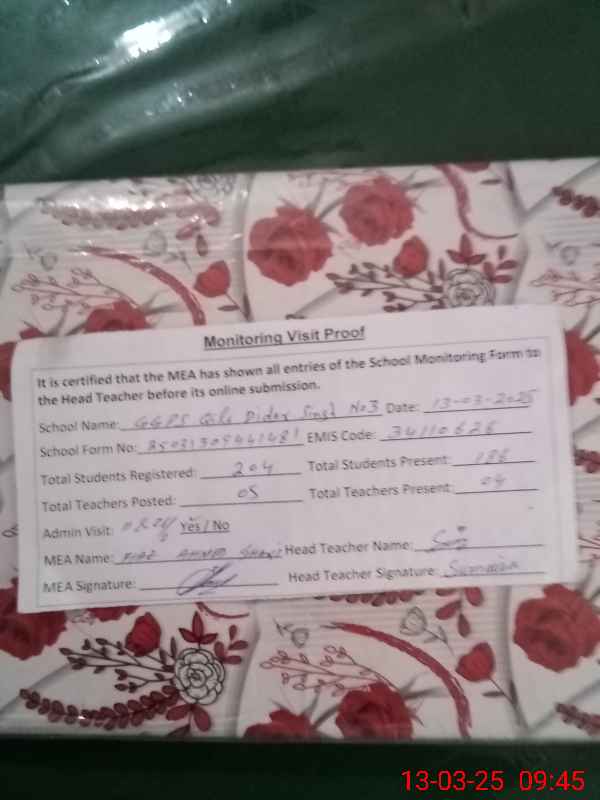 Monitoring Visit Proof
It is certified that the MEA has shown all entries of the School Monitoring Form to
the Head Teacher before its online submission.
School Name: GGPS Qila Didar Singh No3 Date: 13-03-2025
School Form No: EMIS Code: 34110626
Total Students Registered: 204 Total Students Present:
Total Teachers Posted: 05 Total Teachers Present: 04
Admin Visit: Yes / No
MEA Name: AHMED Head Teacher Name:
MEA Signature: Head Teacher Signature: Sumaira
13-03-25 09:45